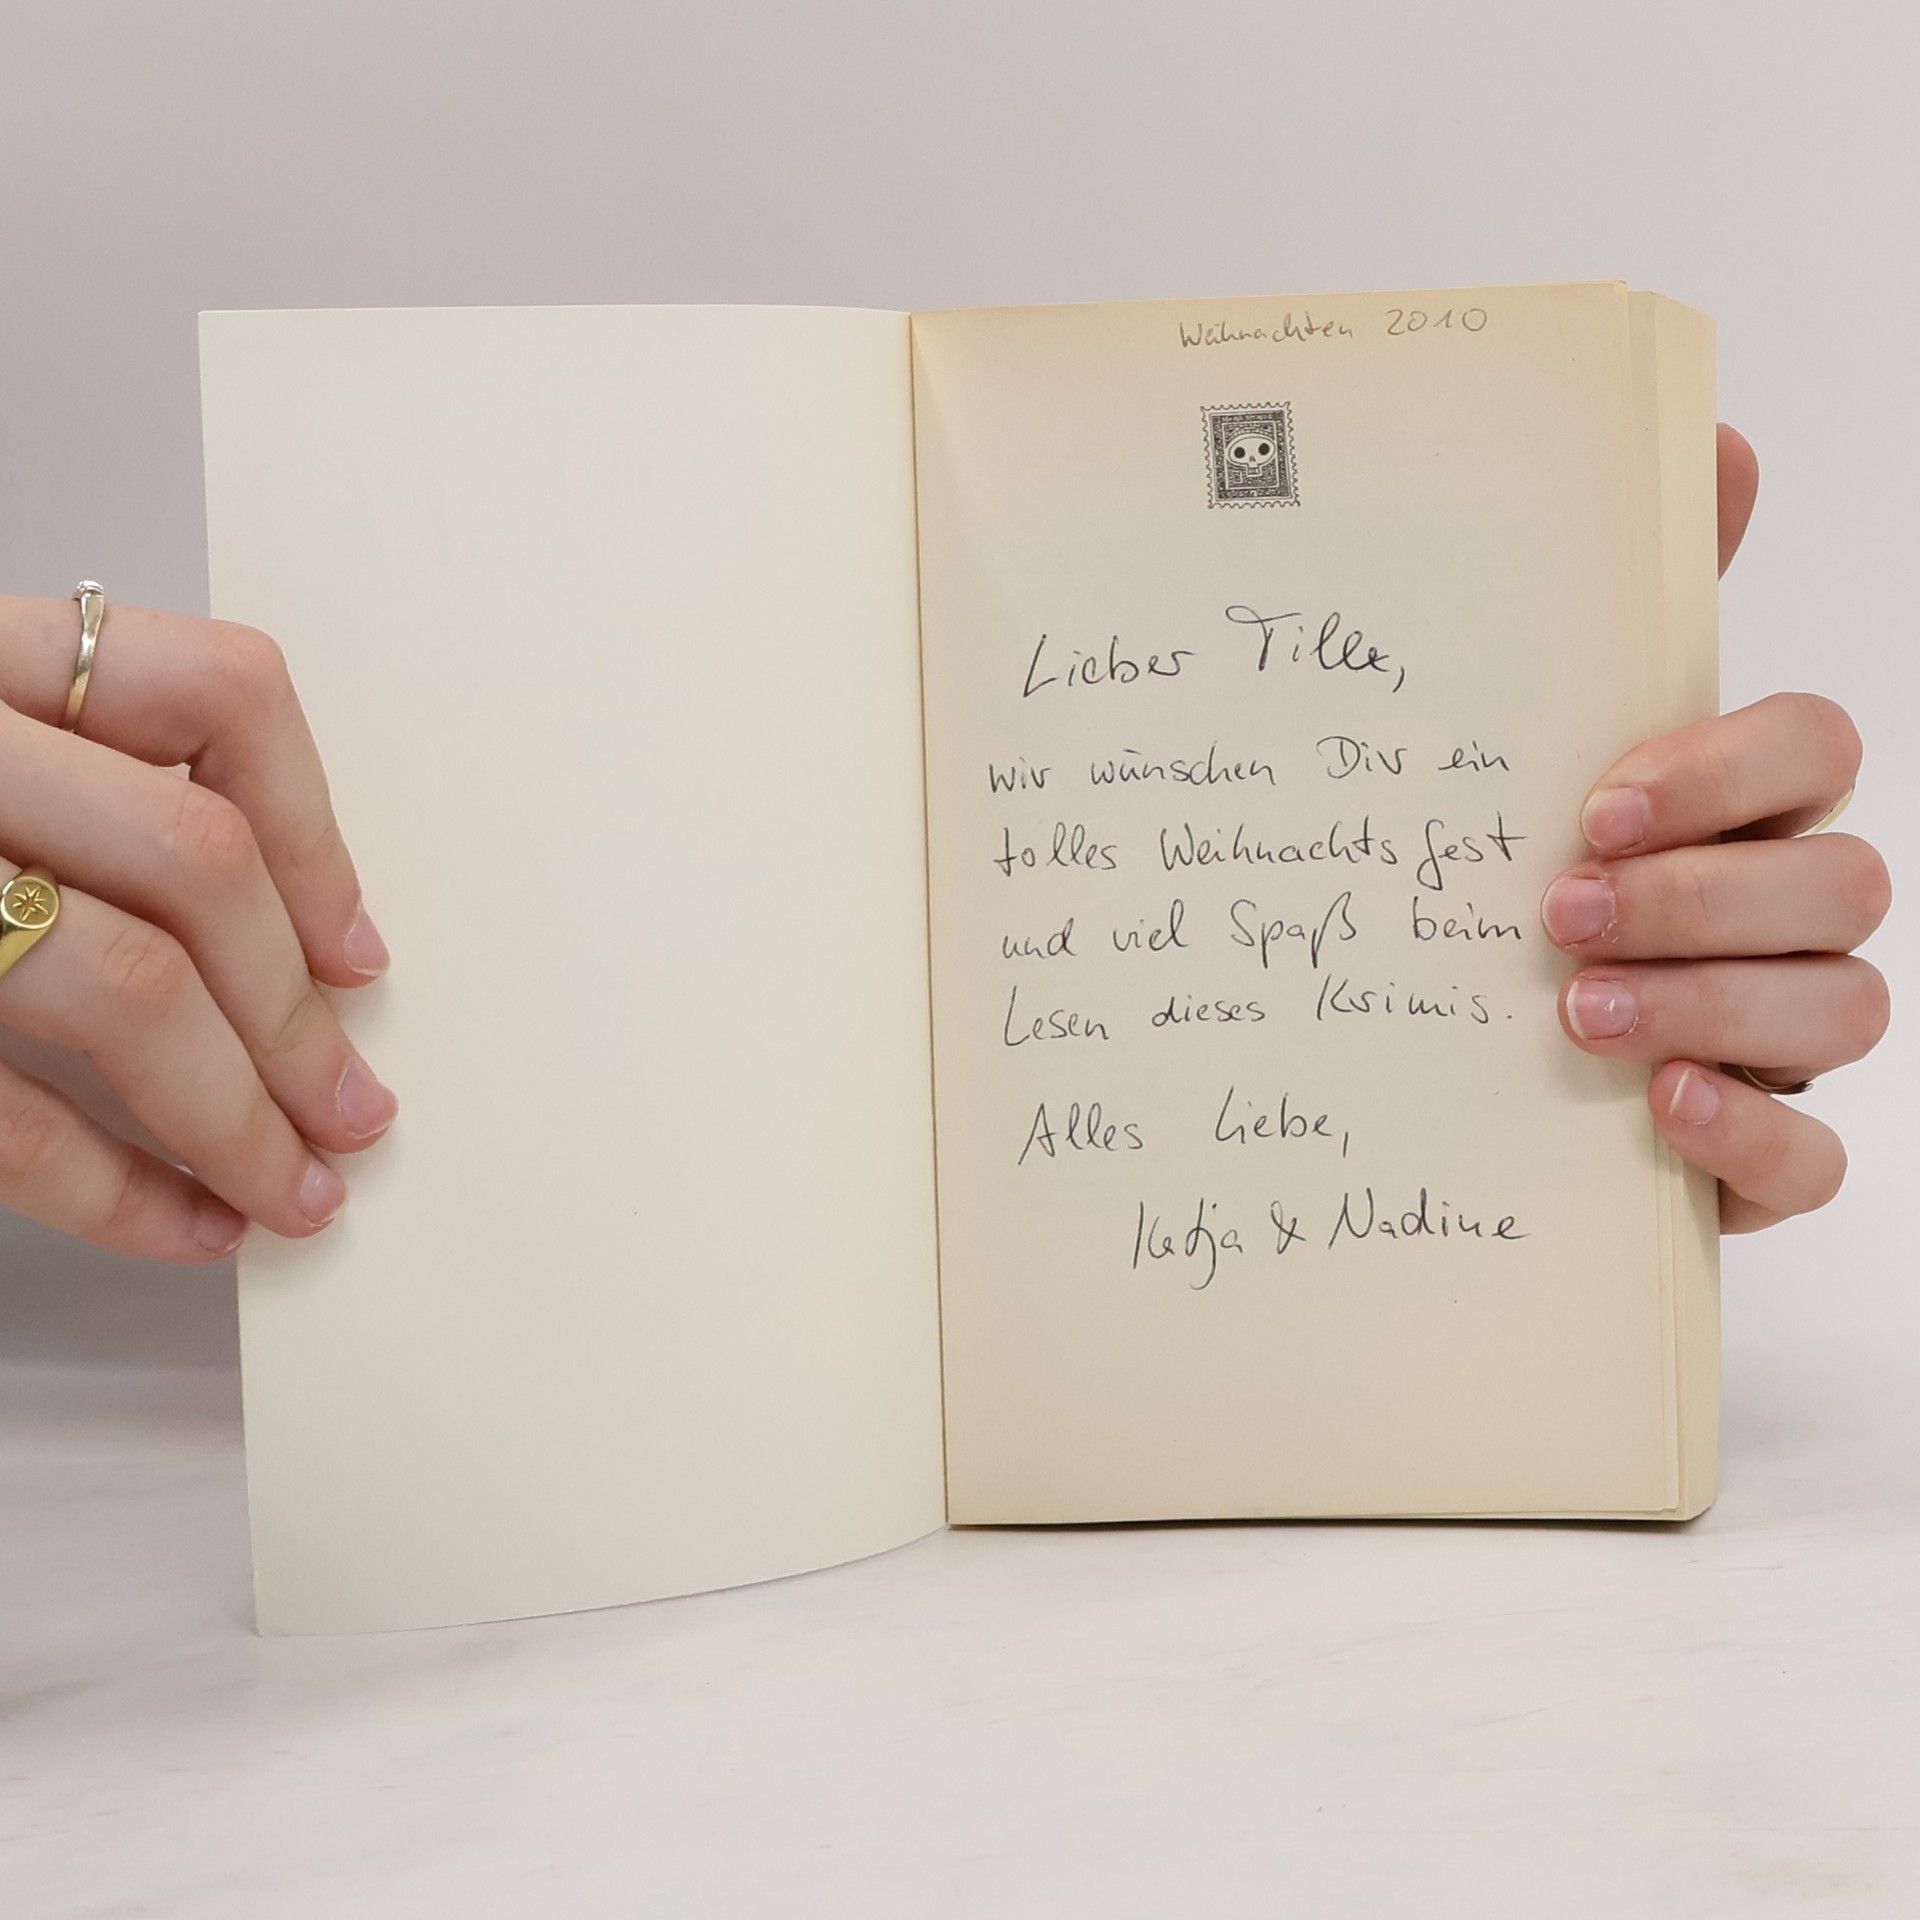 Weihnachten 2010
Lieber Tille,
wir wünschen Dir ein
tolles Weihnachtsfest
und viel Spaß beim
Lesen dieses Krimis.
Alles Liebe,
Katja & Nadine